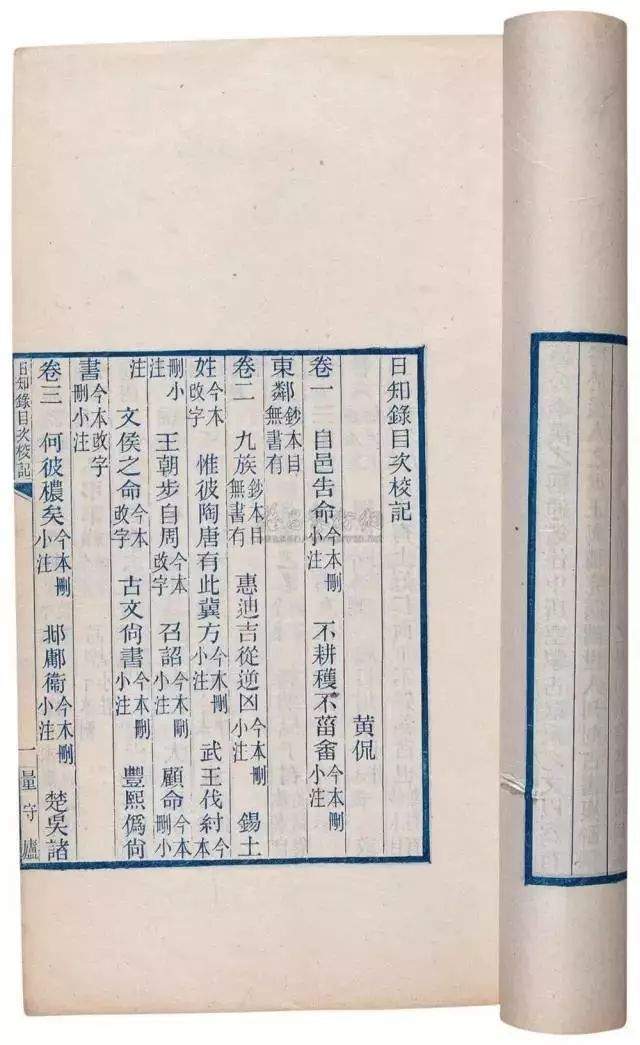 日知錄目次校記
黄侃
卷一 自邑告命今本刪小注 不耕穫不菑畬今本刪小注
東鄰鈔本目有書無
卷二 九族鈔本目有書無 惠迪吉從逆凶今本刪小注 錫土
姓今本改字 惟彼陶唐有此冀方今本刪小注 武王伐紂今本
刪小注 王朝步自周今本改字 召誥今本刪小注 顧命今本刪小
注 文侯之命今本改字 古文尙書今本刪小注 豐熙僞尙
書今本改字刪小注
卷三 何彼穠矣今本刪小注 邶鄘衞今本刪小注 楚吳諸
日知錄目次校記
一
量守廬